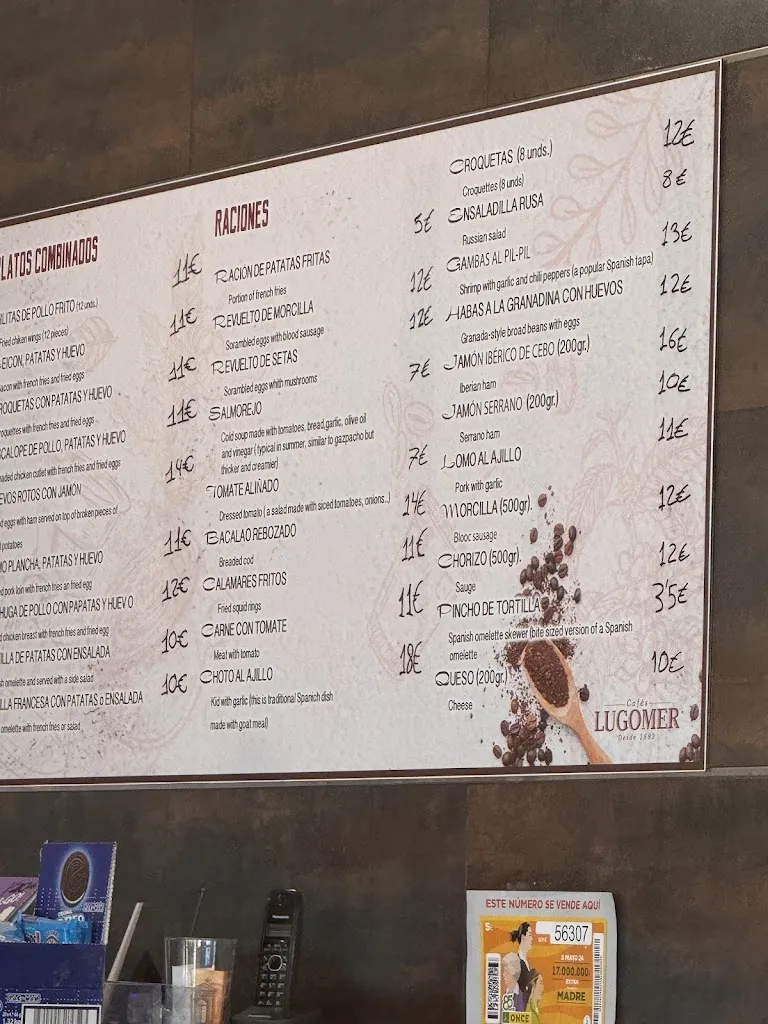 PLATOS COMBINADOS
ALITAS DE POLLO FRITO (12 unds.) 11€
Fried chiken wings (12 pieces)
BEICON, PATATAS Y HUEVO 11€
Bacon with french fries and fried eggs
CROQUETAS CON PATATAS Y HUEVO 11€
croquettes with french fries and fried eggs
ESCALOPE DE POLLO, PATATAS Y HUEVO 11€
breaded chicken cutlet with french fries and fried eggs
HUEVOS ROTOS CON JAMÓN 14€
eggs with ham served on top of broken pieces of
potatoes
LOMO PLANCHA, PATATAS Y HUEVO 11€
pork loin with french fries an fried egg
PECHUGA DE POLLO CON PAPATAS Y HUEVO 12€
chicken breast with french fries and fried egg
TORTILLA DE PATATAS CON ENSALADA 10€
omelette and served with a side salad
TORTILLA FRANCESA CON PATATAS o ENSALADA 10€
omelette with french fries or salad
RACIONES
RACION DE PATATAS FRITAS 5€
Portion of french fries
REVUELTO DE MORCILLA 12€
Sorambled eggs with blood sausage
REVUELTO DE SETAS 12€
Sorambled eggs whith mushrooms
SALMOREJO 7€
Cold soup made with tomatoes, bread,garlic, olive oil
and vinegar ( typical in summer, similar to gazpacho but
thicker and creamier)
TOMATE ALIÑADO 7€
Dressed tomato ( a salad made with siced tomatoes, onions..)
BACALAO REBOZADO 14€
Breaded cod
CALAMARES FRITOS 11€
Fried squid rings
CARNE CON TOMATE 11€
Meat with tomato
CHOTO AL AJILLO 18€
Kid with garlic (this is traditional Spanich dish
made with goat meal)
CROQUETAS (8 unds.) 12€
Croquettes (8 unds)
ENSALADILLA RUSA 8€
Russian salad
GAMBAS AL PIL-PIL 13€
Shrimp with garlic and chili peppers (a popular Spanish tapa)
HABAS A LA GRANADINA CON HUEVOS 12€
Granada-style broad beans with eggs
JAMÓN IBÉRICO DE CEBO (200gr.) 16€
Iberian ham
JAMÓN SERRANO (200gr.) 10€
Serrano ham
LOMO AL AJILLO 11€
Pork with garlic
MORCILLA (500gr). 12€
Blooc sausage
CHORIZO (500gr). 12€
Sauge
PINCHO DE TORTILLA 3'5€
Spanish omelette skewer (bite sized version of a Spanish
omelette
QUESO (200gr.) 10€
Cheese
Cafés
LUGOMER
Desde 1883
Panasonic
ESTE NÚMERO SE VENDE AQUÍ
56307
5 MAYO 24
17.000.000
EXTRA
MADRE
ONCE